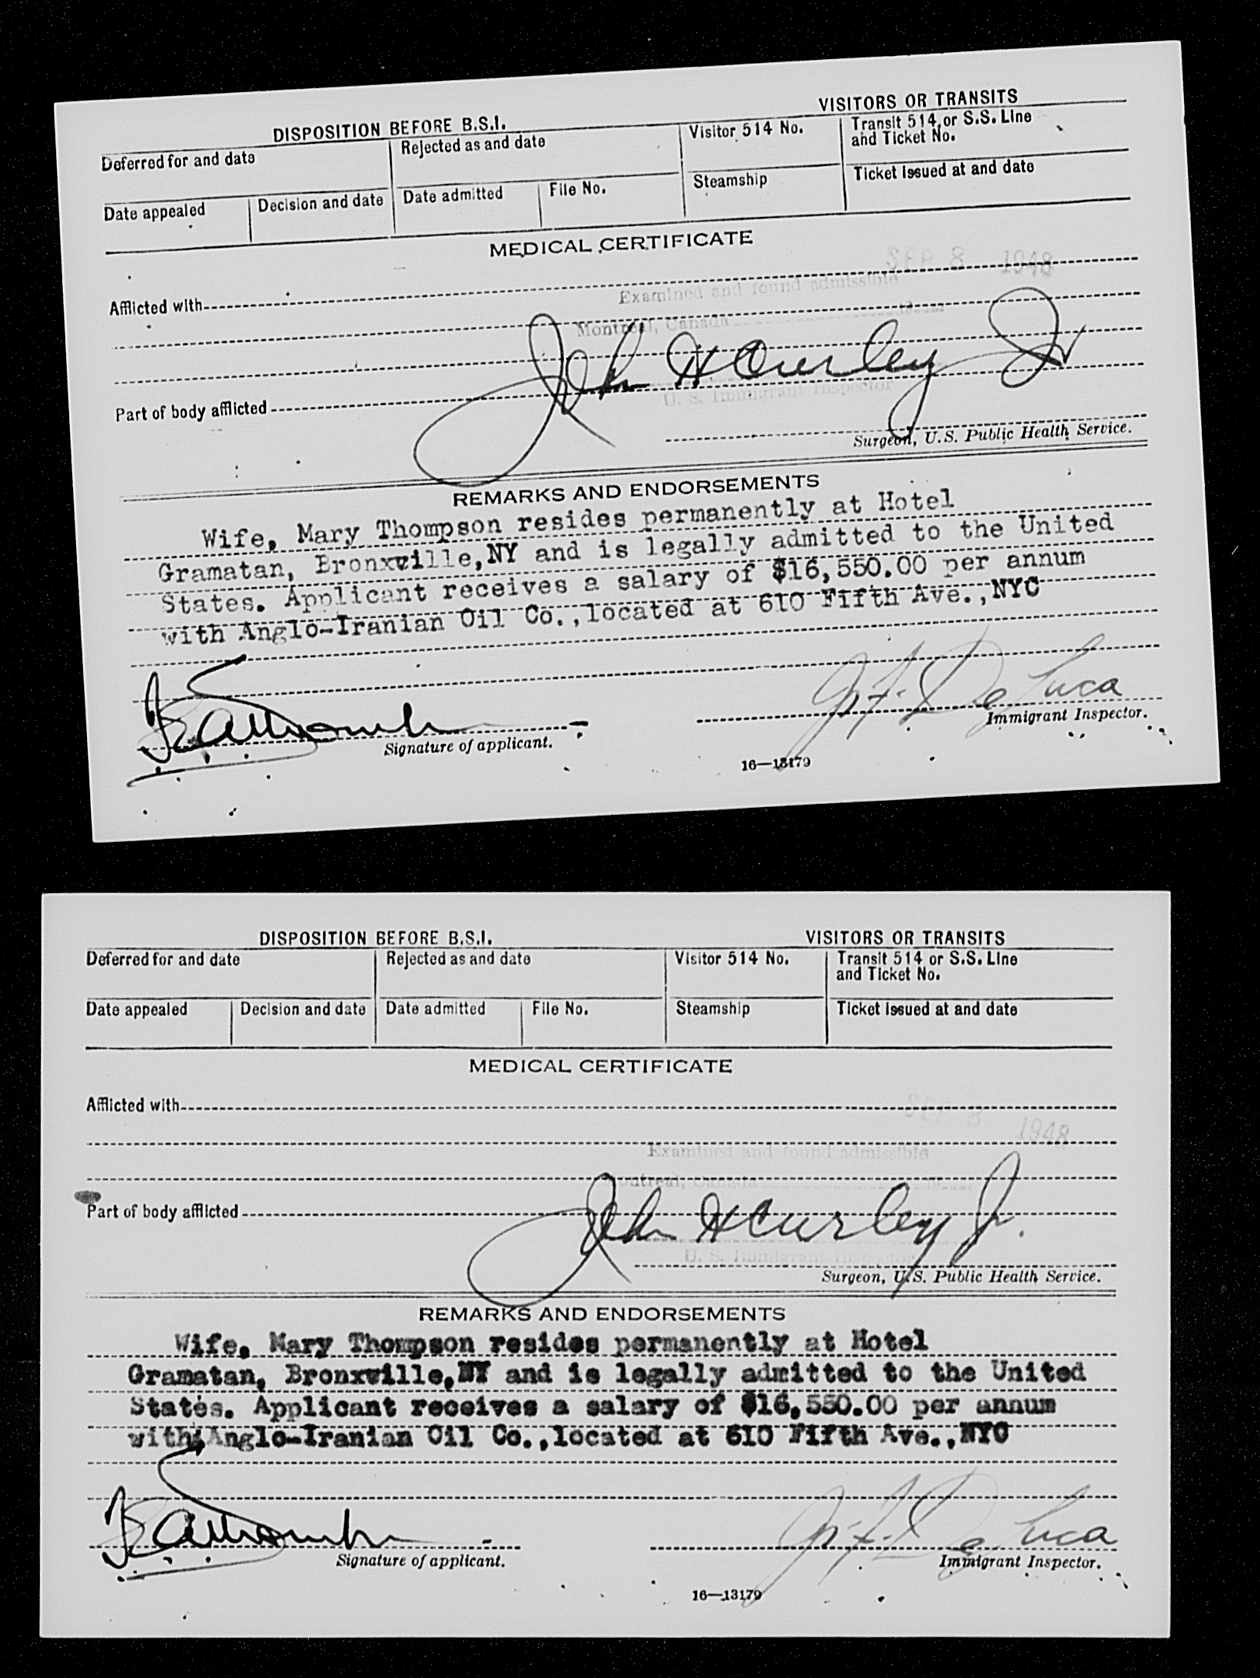 DISPOSITION BEFORE B.S.I.
VISITORS OR TRANSITS
Deferred for and date
Rejected as and date
Visitor 514 No.
Transit 514 or S.S. Line
and Ticket No.
Date appealed
Decision and date
Date admitted
File No.
Steamship
Ticket issued at and date
MEDICAL CERTIFICATE
SEP 8 1948
Afflicted with
Examined and found admissible
Montreal, Canada
John H Curley Jr
Part of body afflicted
U. S. Immigrant Inspector
Surgeon, U.S. Public Health Service.
REMARKS AND ENDORSEMENTS
Wife, Mary Thompson resides permanently at Hotel
Gramatan, Bronxville,NY and is legally admitted to the United
States. Applicant receives a salary of $16,550.00 per annum
with Anglo-Iranian Oil Co.,located at 610 Fifth Ave.,NYC
De Luca
Signature of applicant.
Immigrant Inspector.
16—13179
DISPOSITION BEFORE B.S.I.
VISITORS OR TRANSITS
Deferred for and date
Rejected as and date
Visitor 514 No.
Transit 514 or S.S. Line
and Ticket No.
Date appealed
Decision and date
Date admitted
File No.
Steamship
Ticket issued at and date
MEDICAL CERTIFICATE
Afflicted with
SEP 8 1948
Examined and found admissible
Montreal, Canada
Part of body afflicted
John H Curley Jr.
U. S. Immigrant Inspector
Surgeon, U.S. Public Health Service.
REMARKS AND ENDORSEMENTS
Wife, Mary Thompson resides permanently at Hotel
Gramatan, Bronxville,NY and is legally admitted to the United
States. Applicant receives a salary of $16,550.00 per annum
with Anglo-Iranian Oil Co.,located at 610 Fifth Ave.,NYC
De Luca
Signature of applicant.
Immigrant Inspector.
16—13179